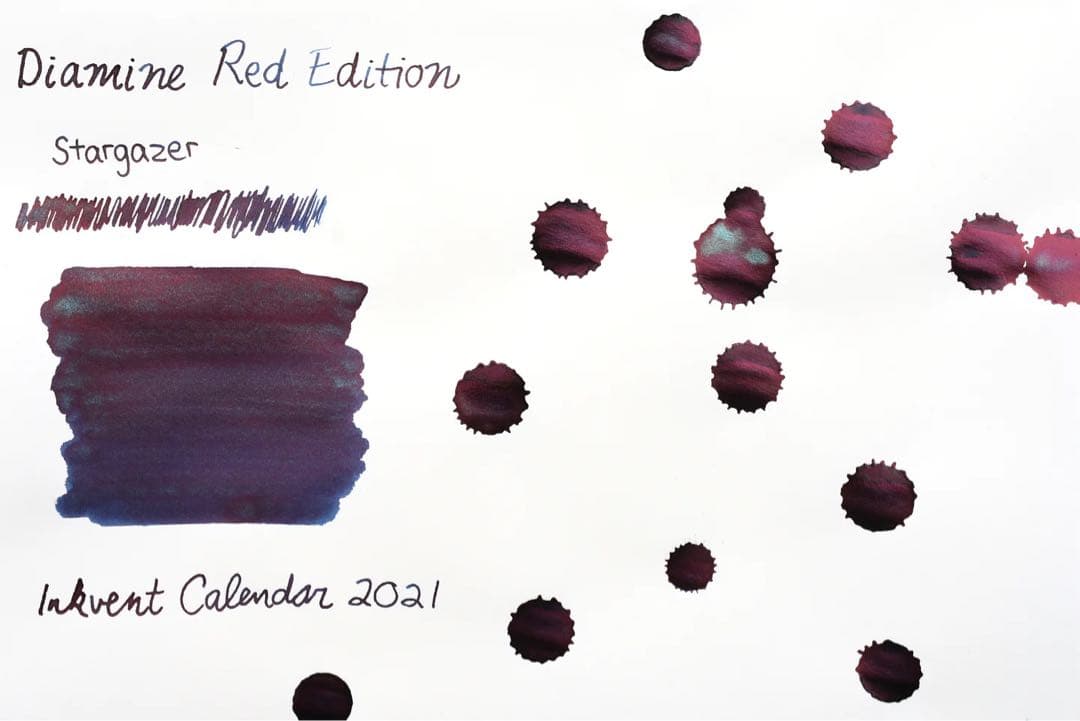 Diamine Red Edition
Stargazer
Inkvent Calendar 2021